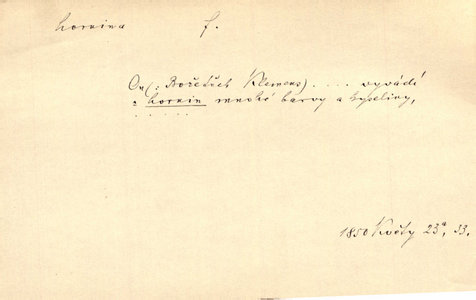 hornina f.
On (: Bořetěch Klemens) .... vyvádí
z hornin mnohé barvy a kyseliny,
.....
1850 Květy 23a, 33.